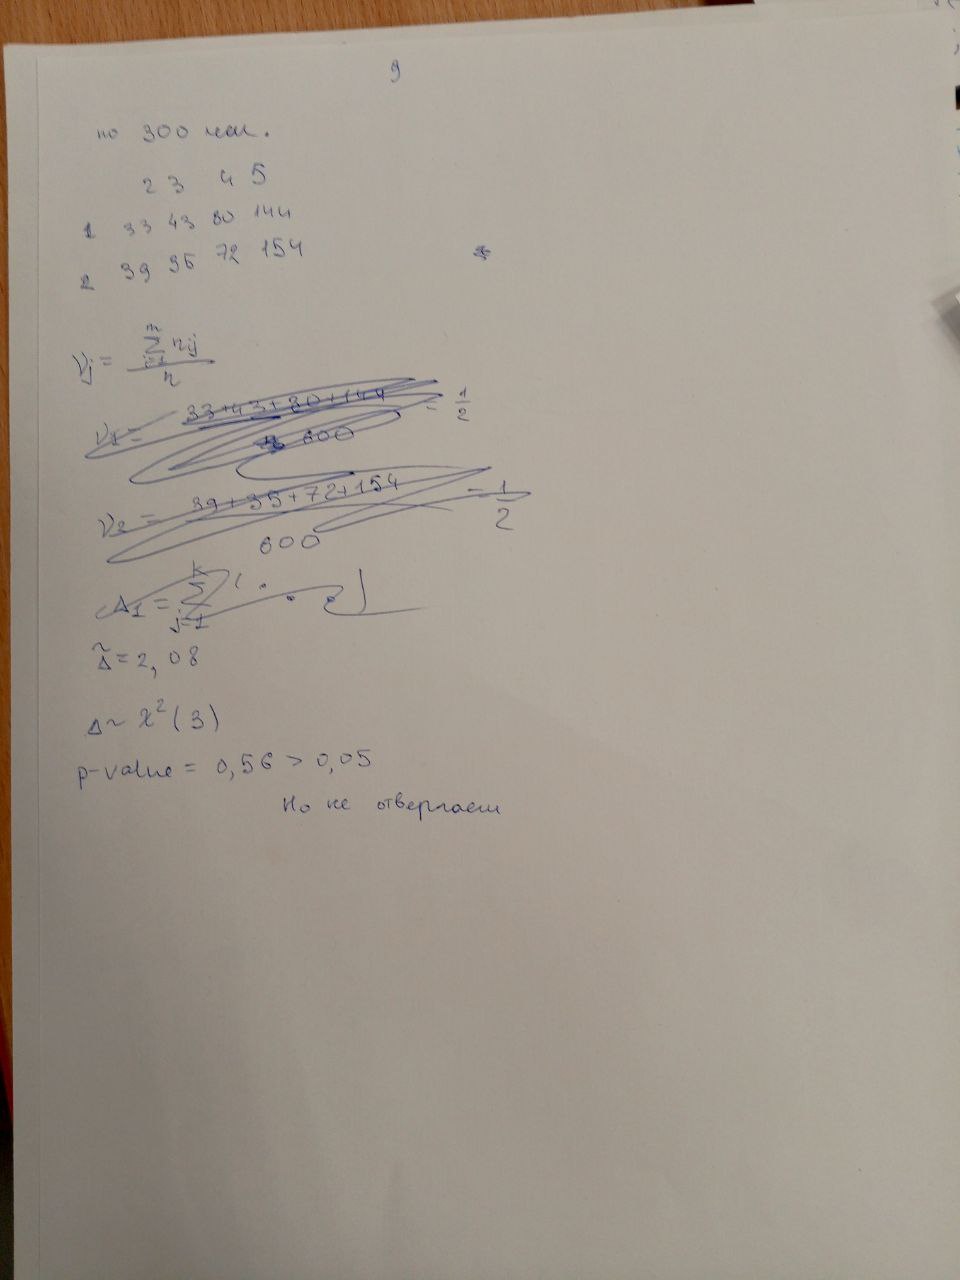 9
по 300 чел.
2 3 4 5
1 33 43 80 144
2 39 35 72 154
νj = Σ nij / n
m
i=1
ν1 = 33+43+80+144 / 600 = 1/2
ν2 = 39+35+72+154 / 600 = 1/2
Δ1 = Σ
k
j=1
Δ̃ = 2,08
Δ ~ χ²(3)
p-value = 0,56 > 0,05
H₀ не отвергаем